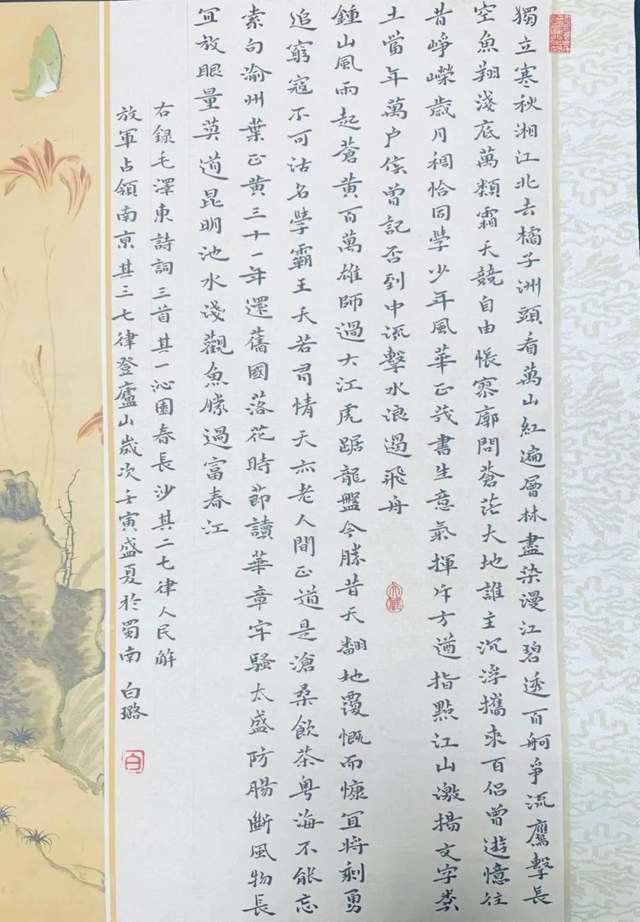 獨立寒秋湘江北去橘子洲頭看萬山紅遍層林盡染漫江碧透百舸爭流鷹擊長
空魚翔淺底萬類霜天競自由悵寥廓問蒼茫大地誰主沉浮攜來百侶曾遊憶往
昔崢嶸歲月稠恰同學少年風華正茂書生意氣揮斥方遒指點江山激揚文字糞
土當年萬戶侯曾記否到中流擊水浪遏飛舟
鍾山風雨起蒼黃百萬雄師過大江虎踞龍盤今勝昔天翻地覆慨而慷宜將剩勇
追窮寇不可沽名學霸王天若有情天亦老人間正道是滄桑飲茶粵海不能忘
索句渝州葉正黃三十一年還舊國落花時節讀華章牢騷太盛防腸斷風物長
宜放眼量莫道昆明池水淺觀魚勝過富春江
右錄毛澤東詩詞三首其一沁園春長沙其二七律人民解
放軍占領南京其三七律登廬山歲次壬寅盛夏於蜀南 白璐
白